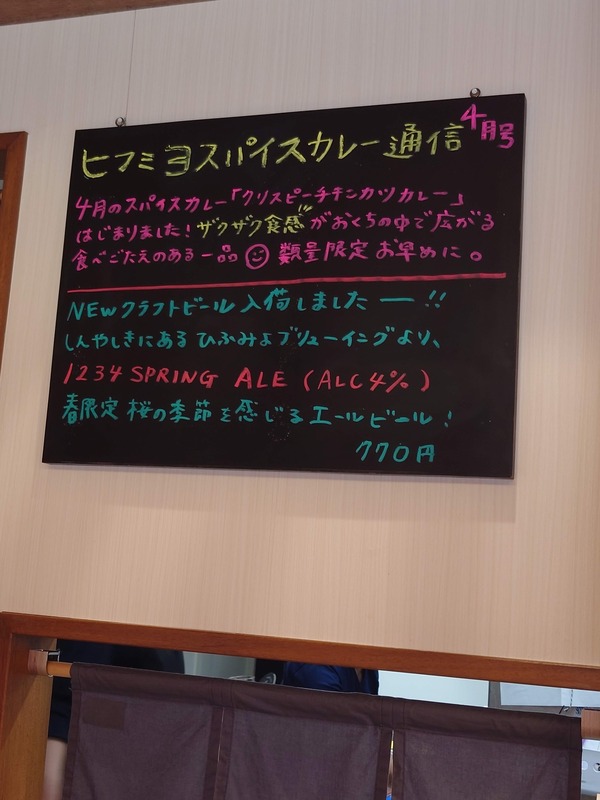 ヒフミヨスパイスカレー通信 4月号
4月のスパイスカレー「クリスピーチキンカツカレー」
はじまりました！ザクザク食感がおくちの中で広がる
食べごたえのある一品 数量限定 お早めに。
NEWクラフトビール入荷しましたー！！
しんやしきにあるひふみよブリューイングより、
1234 SPRING ALE (ALC4%)
春限定 桜の季節を感じるエールビール！
770円